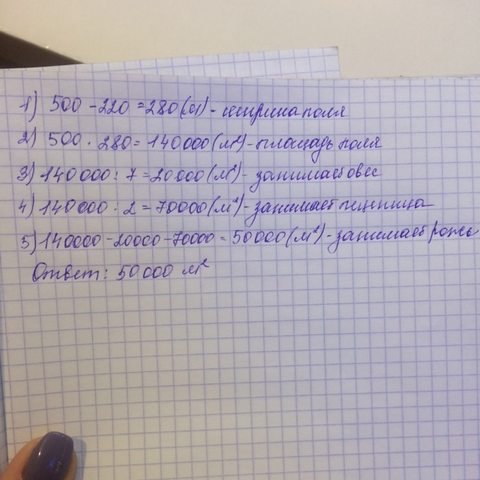 1) 500 - 220 = 280 (м) - ширина поля
2) 500 · 280 = 140000 (м²) - площадь поля
3) 140000 : 7 = 20000 (м²) - занимает овес
4) 140000 : 2 = 70000 (м²) - занимает пшеница
5) 140000 - 20000 - 70000 = 50000 (м²) - занимает рожь
Ответ: 50000 м²